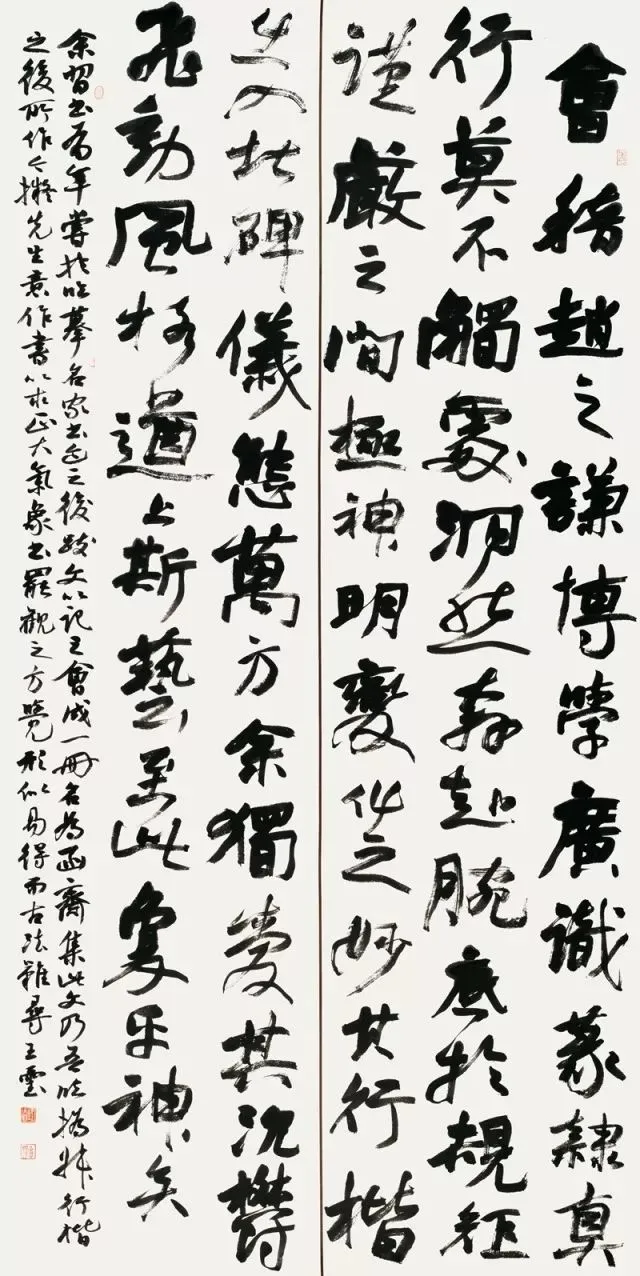 會稽趙之謙博學廣識篆隸真
行莫不觸處洞然奔赴腕底於規矩
謹嚴之間極神明變化之妙其行楷
出入北碑儀態萬方余獨愛其沈鬱
飛動風格遒上斯藝至此象乎神矣
余習書有年嘗於臨摹名家書迹之後跋文以記之會成一冊名為函齋集此文乃吾臨撝叔行楷
之後所作今擬先生意作書以求正大氣象書罷觀之方覺形似易得而古法難尋王雪